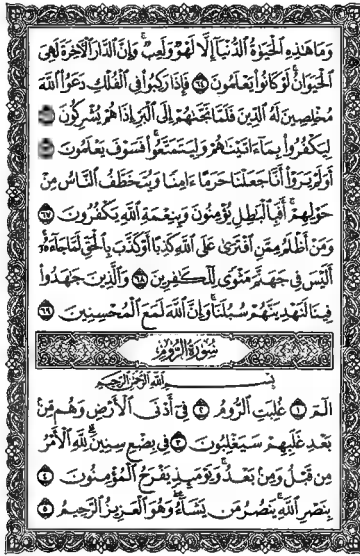 وَمَا هَٰذِهِ الْحَيَوٰةُ الدُّنْيَآ إِلَّا لَهْوٌ وَلَعِبٌ ۚ وَإِنَّ الدَّارَ الْأَخِرَةَ لَهِىَ
الْحَيَوَانُ ۚ لَوْ كَانُوا۟ يَعْلَمُونَ ٦٤ فَإِذَا رَكِبُوا۟ فِى الْفُلْكِ دَعَوُا۟ اللَّهَ
مُخْلِصِينَ لَهُ الدِّينَ فَلَمَّا نَجَّىٰهُمْ إِلَى الْبَرِّ إِذَا هُمْ يُشْرِكُونَ
لِيَكْفُرُوا۟ بِمَآ ءَاتَيْنَٰهُمْ وَلِيَتَمَتَّعُوا۟ ۖ فَسَوْفَ يَعْلَمُونَ
أَوَلَمْ يَرَوْا۟ أَنَّا جَعَلْنَا حَرَمًا ءَامِنًا وَيُتَخَطَّفُ النَّاسُ مِنْ
حَوْلِهِمْ ۚ أَفَبِالْبَٰطِلِ يُؤْمِنُونَ وَبِنِعْمَةِ اللَّهِ يَكْفُرُونَ ٦٧
وَمَنْ أَظْلَمُ مِمَّنِ افْتَرَىٰ عَلَى اللَّهِ كَذِبًا أَوْ كَذَّبَ بِالْحَقِّ لَمَّا جَآءَهُۥٓ ۚ
أَلَيْسَ فِى جَهَنَّمَ مَثْوًى لِّلْكَٰفِرِينَ ٦٨ وَالَّذِينَ جَٰهَدُوا۟
فِينَا لَنَهْدِيَنَّهُمْ سُبُلَنَا ۚ وَإِنَّ اللَّهَ لَمَعَ الْمُحْسِنِينَ ٦٩
سُورَةُ الرُّومِ
بِسْمِ اللَّهِ الرَّحْمَٰنِ الرَّحِيمِ
الٓمٓ ١ غُلِبَتِ الرُّومُ ٢ فِىٓ أَدْنَى الْأَرْضِ وَهُم مِّنۢ
بَعْدِ غَلَبِهِمْ سَيَغْلِبُونَ ٣ فِى بِضْعِ سِنِينَ ۗ لِلَّهِ الْأَمْرُ
مِن قَبْلُ وَمِنۢ بَعْدُ ۚ وَيَوْمَئِذٍ يَفْرَحُ الْمُؤْمِنُونَ ٤
بِنَصْرِ اللَّهِ ۚ يَنصُرُ مَن يَشَآءُ ۖ وَهُوَ الْعَزِيزُ الرَّحِيمُ ٥